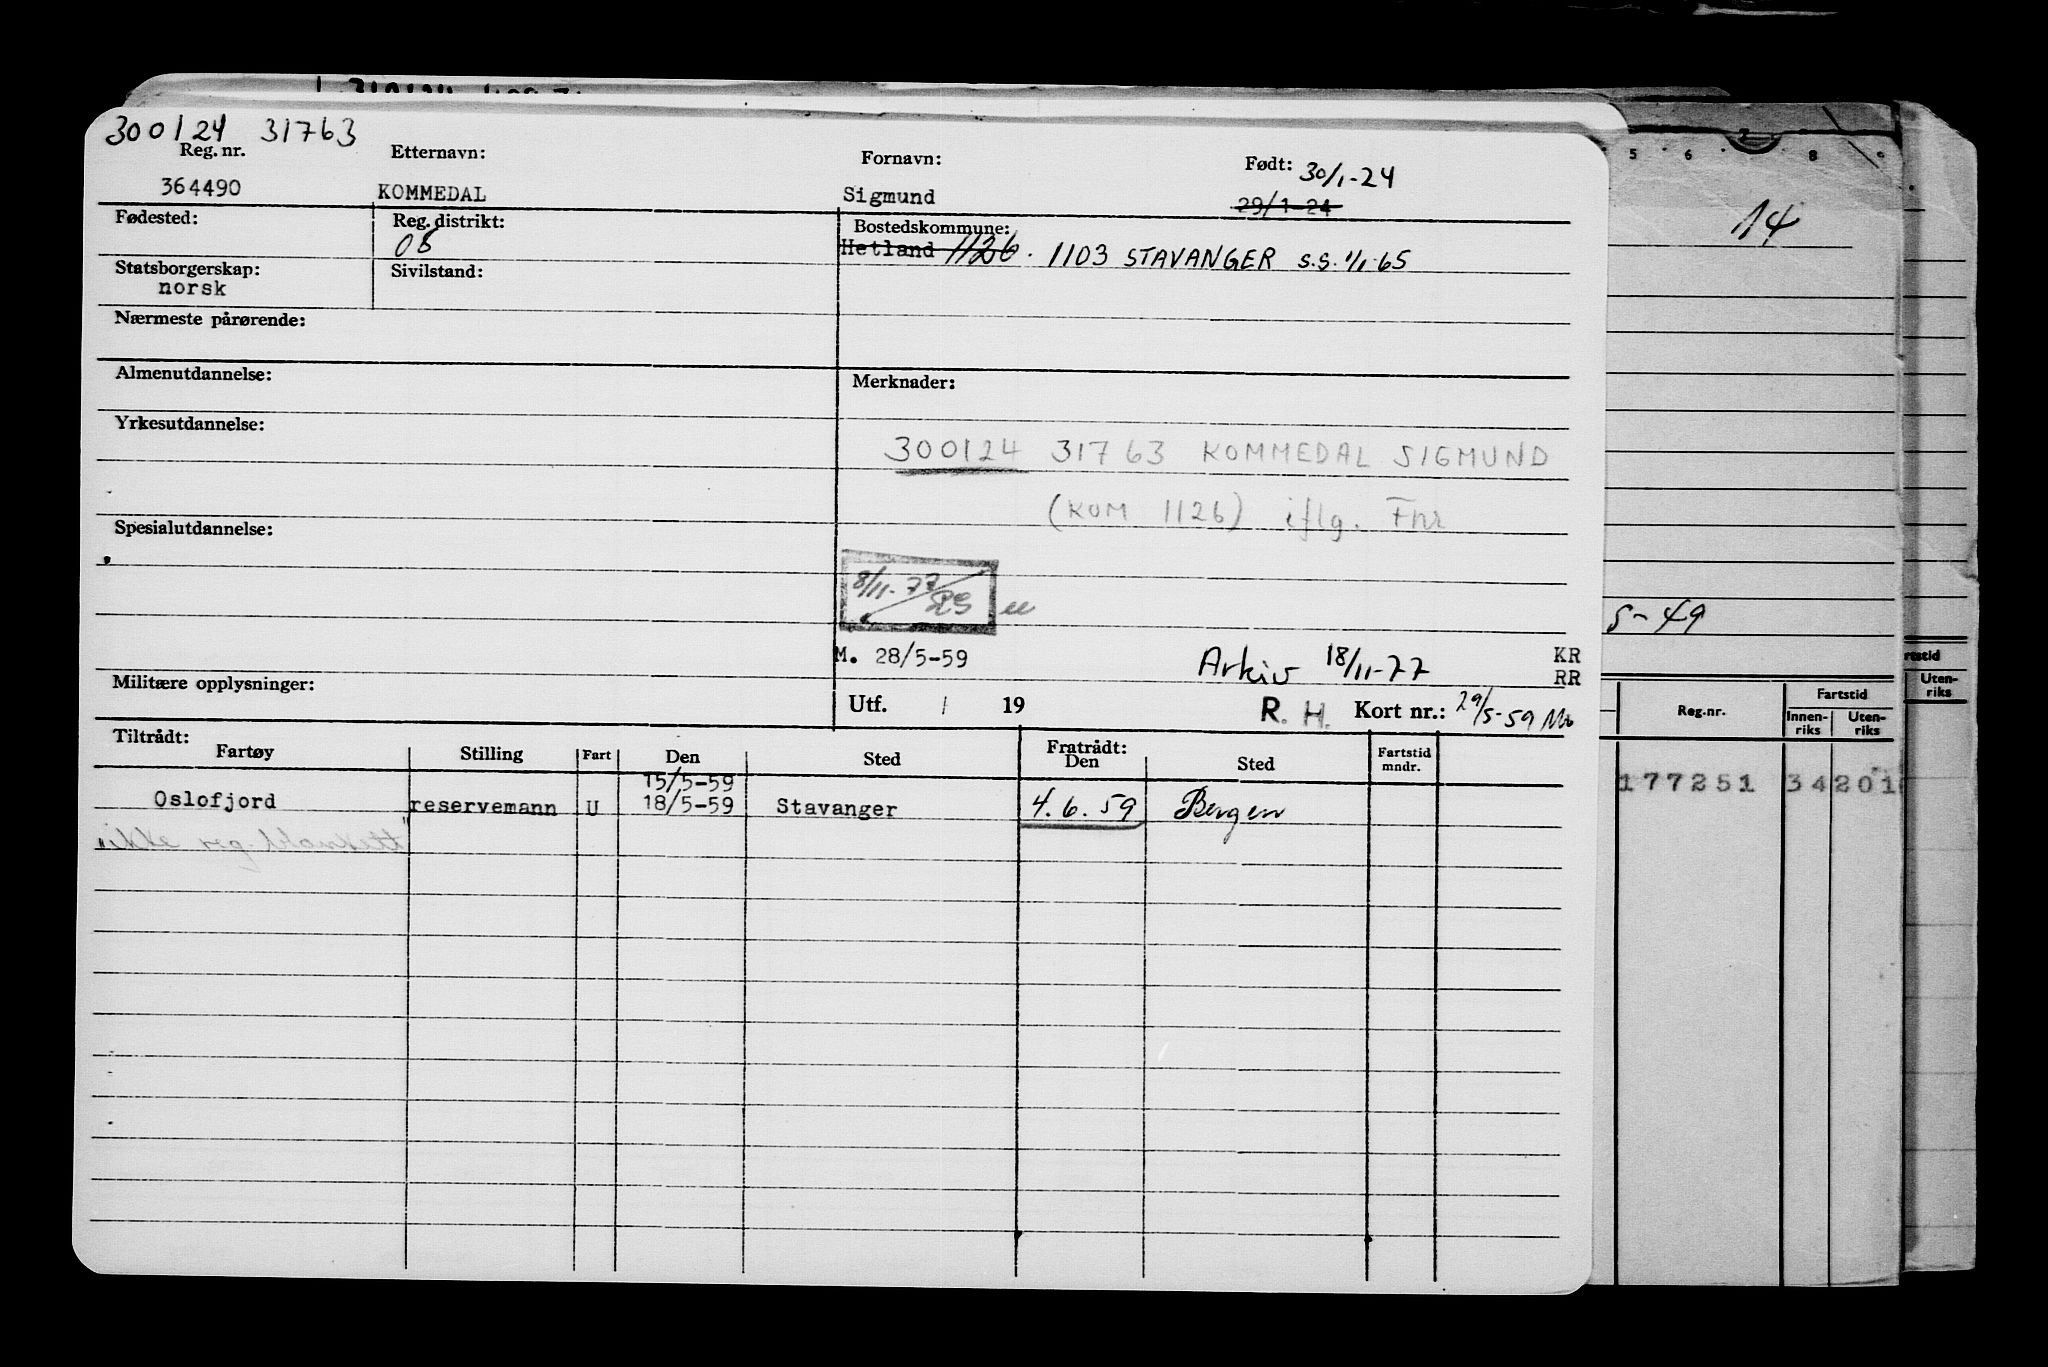 300124 31763
Reg. nr. Etternavn: Fornavn: Født: 30/1-24
364490 KOMMEDAL Sigmund 29/1-24
Fødested: Reg. distrikt: Bostedskommune:
08 Hetland 1126. 1103 STAVANGER S.S. 1/1-65
Statsborgerskap: Sivilstand:
norsk
Nærmeste pårørende:
Almenutdannelse: Merknader:
Yrkesutdannelse:
300124 31763 KOMMEDAL SIGMUND
(KOM 1126) iflg. Fnr
Spesialutdannelse:
8/11-77
M. 28/5-59 Arkiv 18/11-77 KR
RR
Militære opplysninger:
Utf. / 19 R. H. Kort nr.: 29/5-59
Tiltrådt: Fratrådt:
Fartøy Stilling Fart Den Sted Den Sted Fartstid mndr.
15/5-59
Oslofjord reservemann U 18/5-59 Stavanger 4.6.59 Bergen
"ikke reg. blankett"
5 6 7 8 9
14
5-49
Reg.nr. Fartstid
Innenriks Utenriks
177251 34 201
rtstid
Uten-
riks